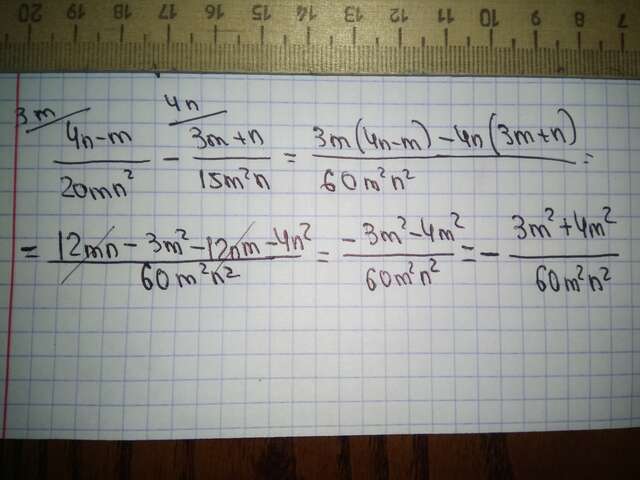 20 19 18 17 16 15 14 13 12 11 10 9 8 7
3m 4n
4n-m/20mn² - 3m+n/15m²n = 3m(4n-m)-4n(3m+n)/60m²n² =
= 12mn-3m²-12nm-4n²/60m²n² = -3m²-4m²/60m²n² = - 3m²+4m²/60m²n²